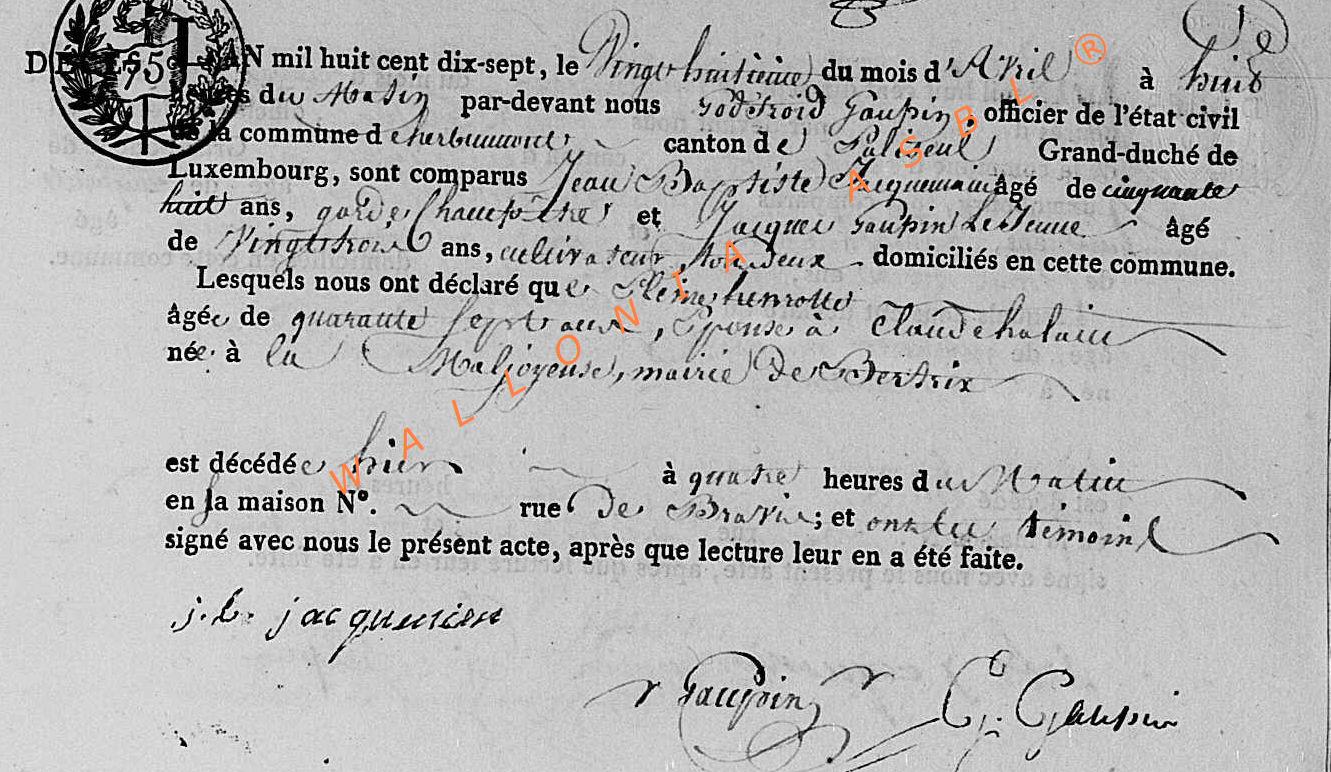 75
AN mil huit cent dix-sept, le Vingt huitieme du mois d'Avril à huit
du Matin par-devant nous Godefroid Gaupin, officier de l'état civil
de la commune d'herbeumont canton de Paliseul Grand-duché de
Luxembourg, sont comparus Jean Baptiste Jacquemin âgé de cinquante
huit ans, garde Champêtre et Jacques Gaupin Le Jeune âgé
de Vingt trois ans, cultivateur, tous deux domiciliés en cette commune.
Lesquels nous ont déclaré que henrotte
âgée de quarante Sept ans, Epouse à Claude halain
née à la Maljoyeuse, mairie de Bertrix
est décédée hier à quatre heures du Matin
en la maison N°. rue de ; et ont les témoins
signé avec nous le présent acte, après que lecture leur en a été faite.
j. b. jacquemin
J Gaupin G. Gaupin
WALLONIA ASBL ®